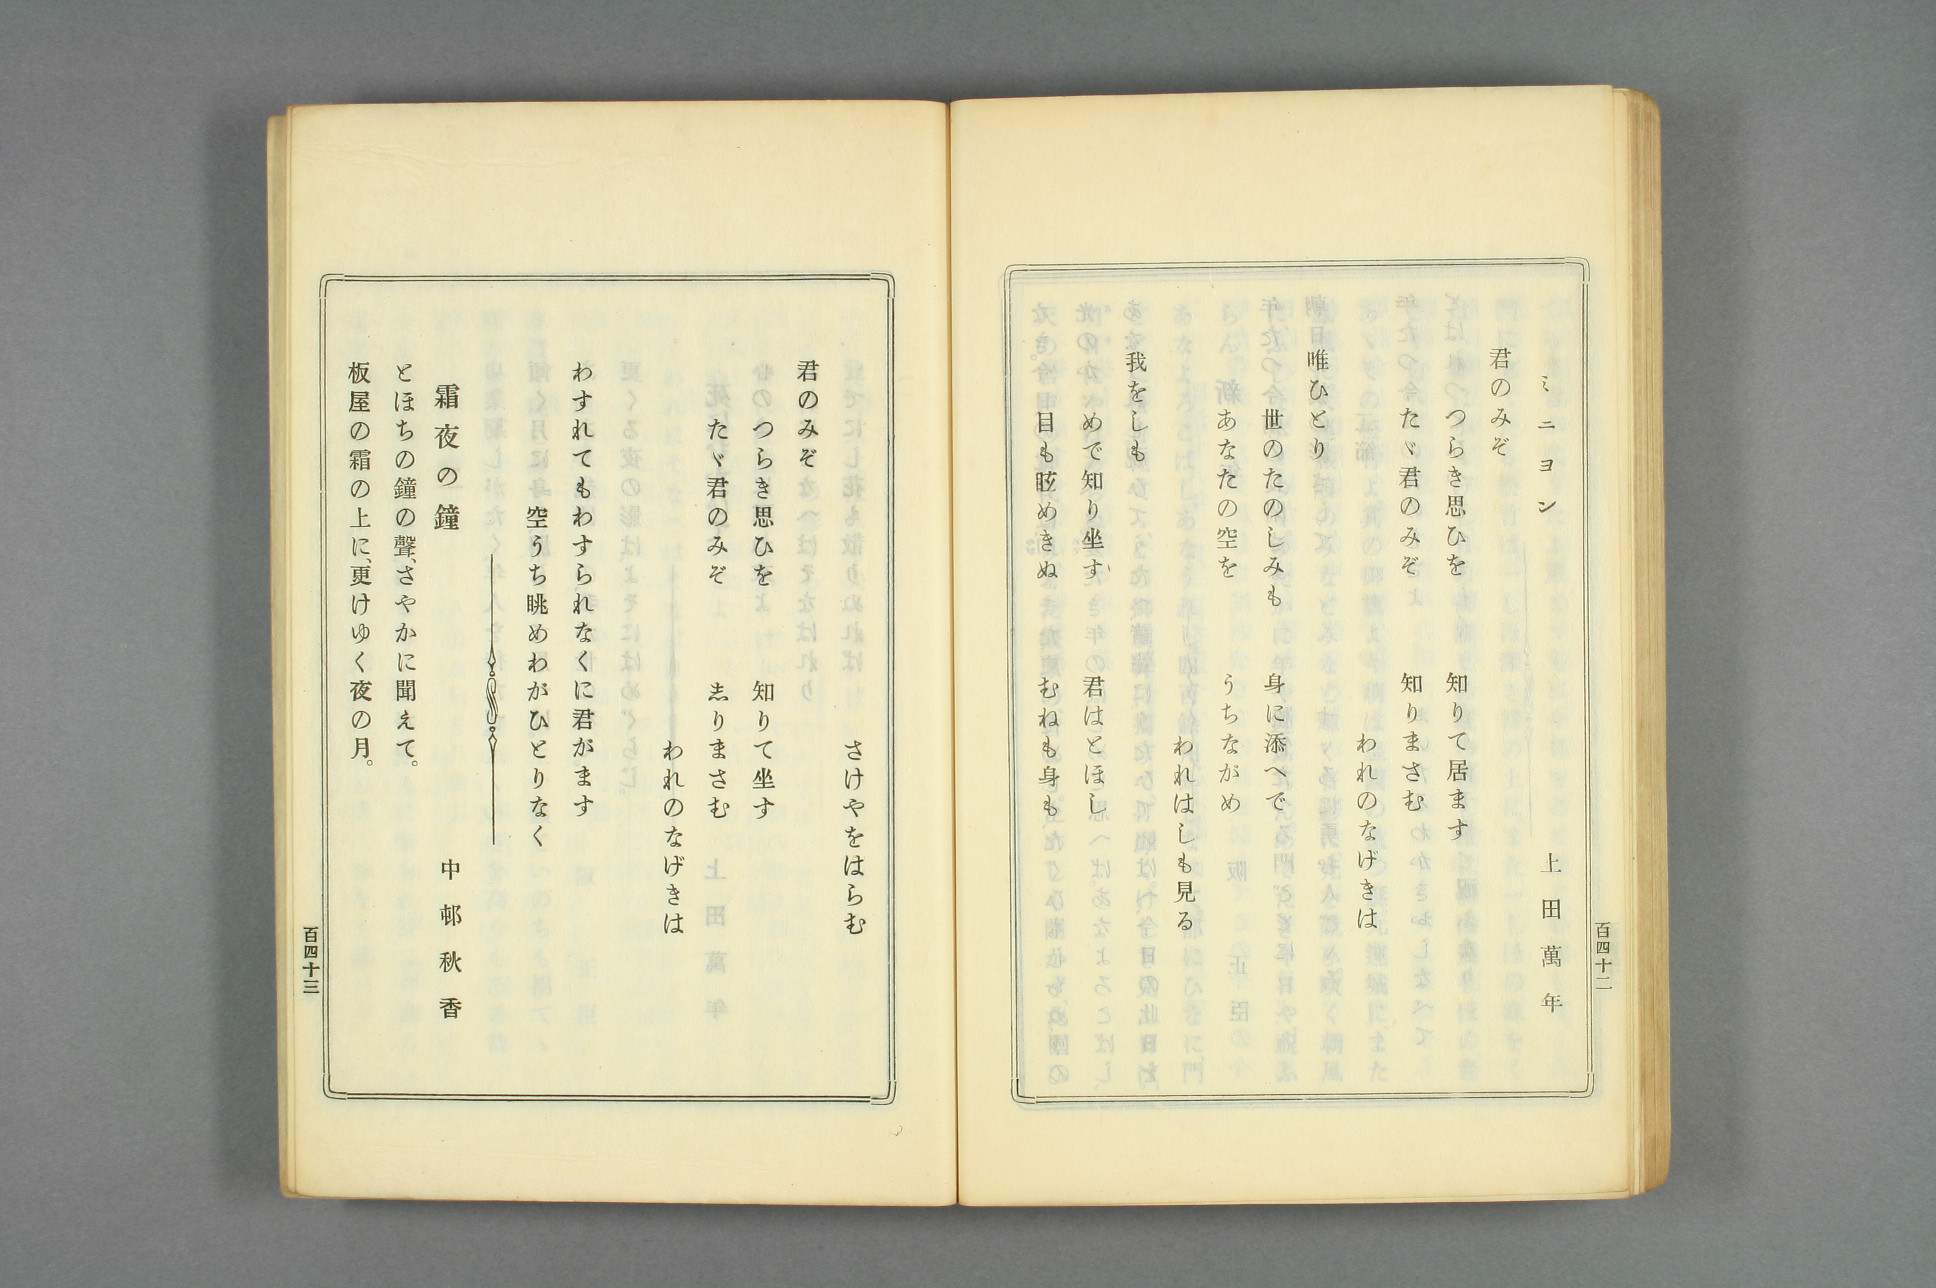 ミニヨン　上田萬年
君のみぞ
つらき思ひを　知りて居ます
たゞ君のみぞ　知りまさむ
われのなげきは
唯ひとり
世のたのしみも　身に添へで
あなたの空を　うちながめ
われはしも見る
我をしも
めで知り坐す　君はとほし
目も眩めきぬ　むねも身も
百四十二
さけやをはらむ
君のみぞ
つらき思ひを　知りて坐す
たゞ君のみぞ　志りまさむ
われのなげきは
わすれてもわすられなくに君がます
空うち眺めわがひとりなく
霜夜の鐘　中邨秋香
とほちの鐘の聲、さやかに聞えて。
板屋の霜の上に、更けゆく夜の月。
百四十三